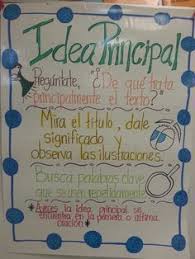 Idea Principal
Pregúntate, ¿De qué trata
principalmente el texto?
Mira el título, dale
significado y
observa las ilustraciones.
Busca palabras clave
que se usen repetidamente
* A veces la idea principal se
encuentra en la primera o última
oración *